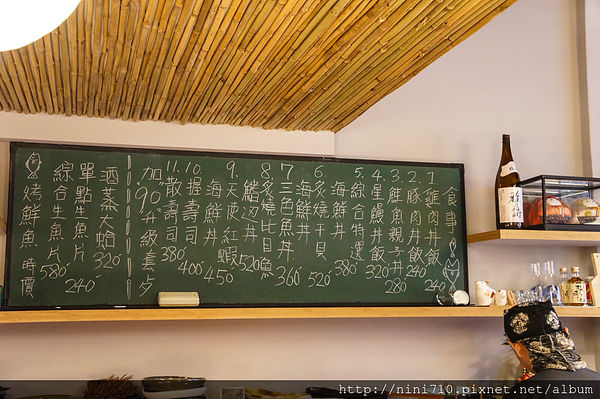 食事
1. 雞肉丼飯 240
2. 豚肉丼飯 240
3. 鮭魚親子丼 280
4. 星饅丼飯 320
5. 綜合特選海鮮丼 380
6. 炙燒干貝海鮮丼 520
7. 三色魚丼 360
8. 炙燒比目魚
520
9. 天使紅蝦海鮮丼 450
10. 握壽司 400
11. 散壽司 380
加"90"升級套餐
酒蒸大蛤 320
單點生魚片 240
綜合生魚片 580
烤鮮魚 時價
http://nini710.pixnet.net/album